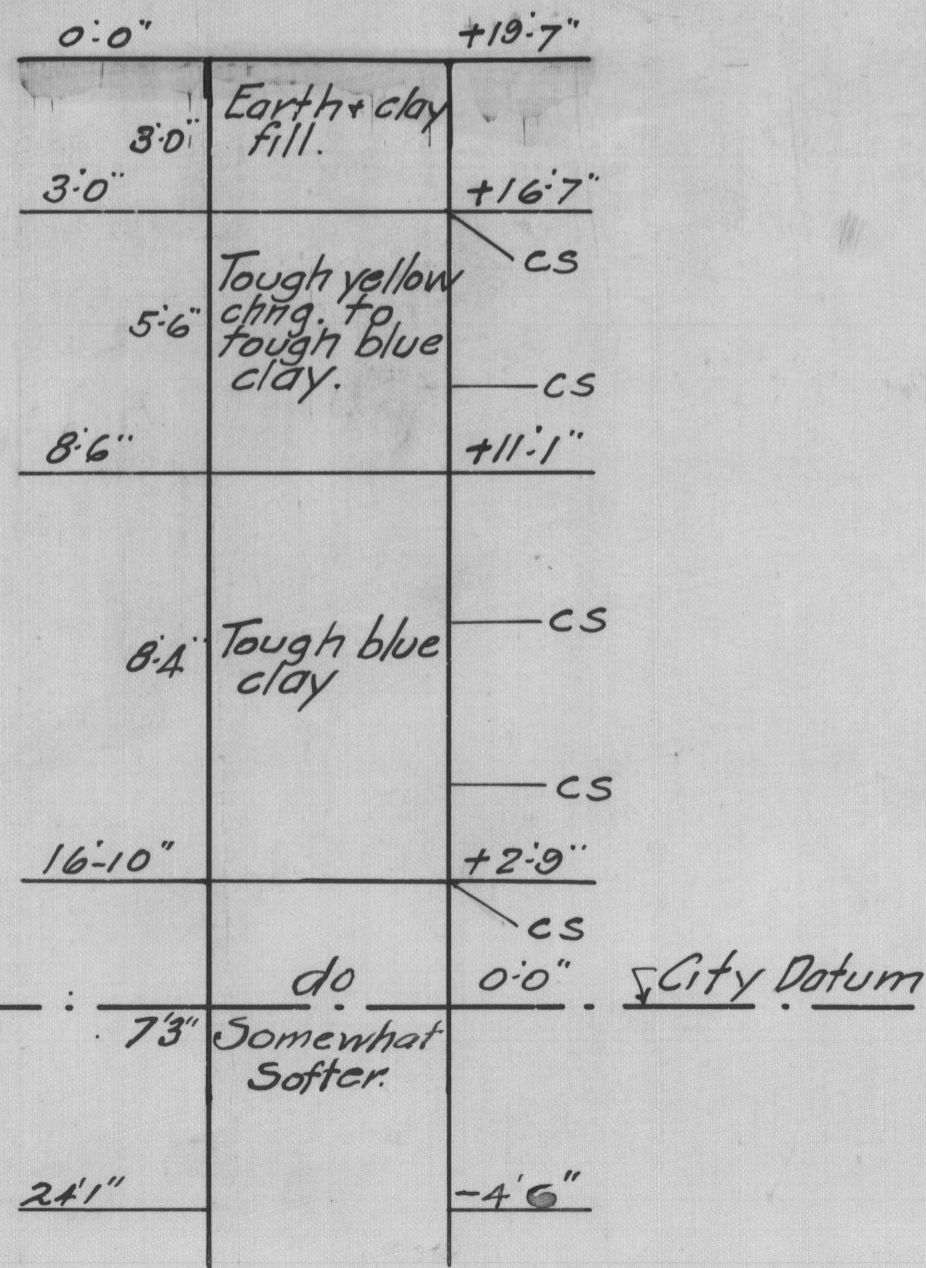 0'-0" +19'-7"
Earth + clay
3'-0" fill.
3'-0" +16'-7"
CS
Tough yellow
5'-6" chng. to
tough blue
clay.
CS
8'-6" +11'-1"
CS
8'-4" Tough blue
clay
CS
16'-10" +2'-9"
CS
do 0'-0" City Datum
7'3" Somewhat
Softer.
24'1" -4'6"